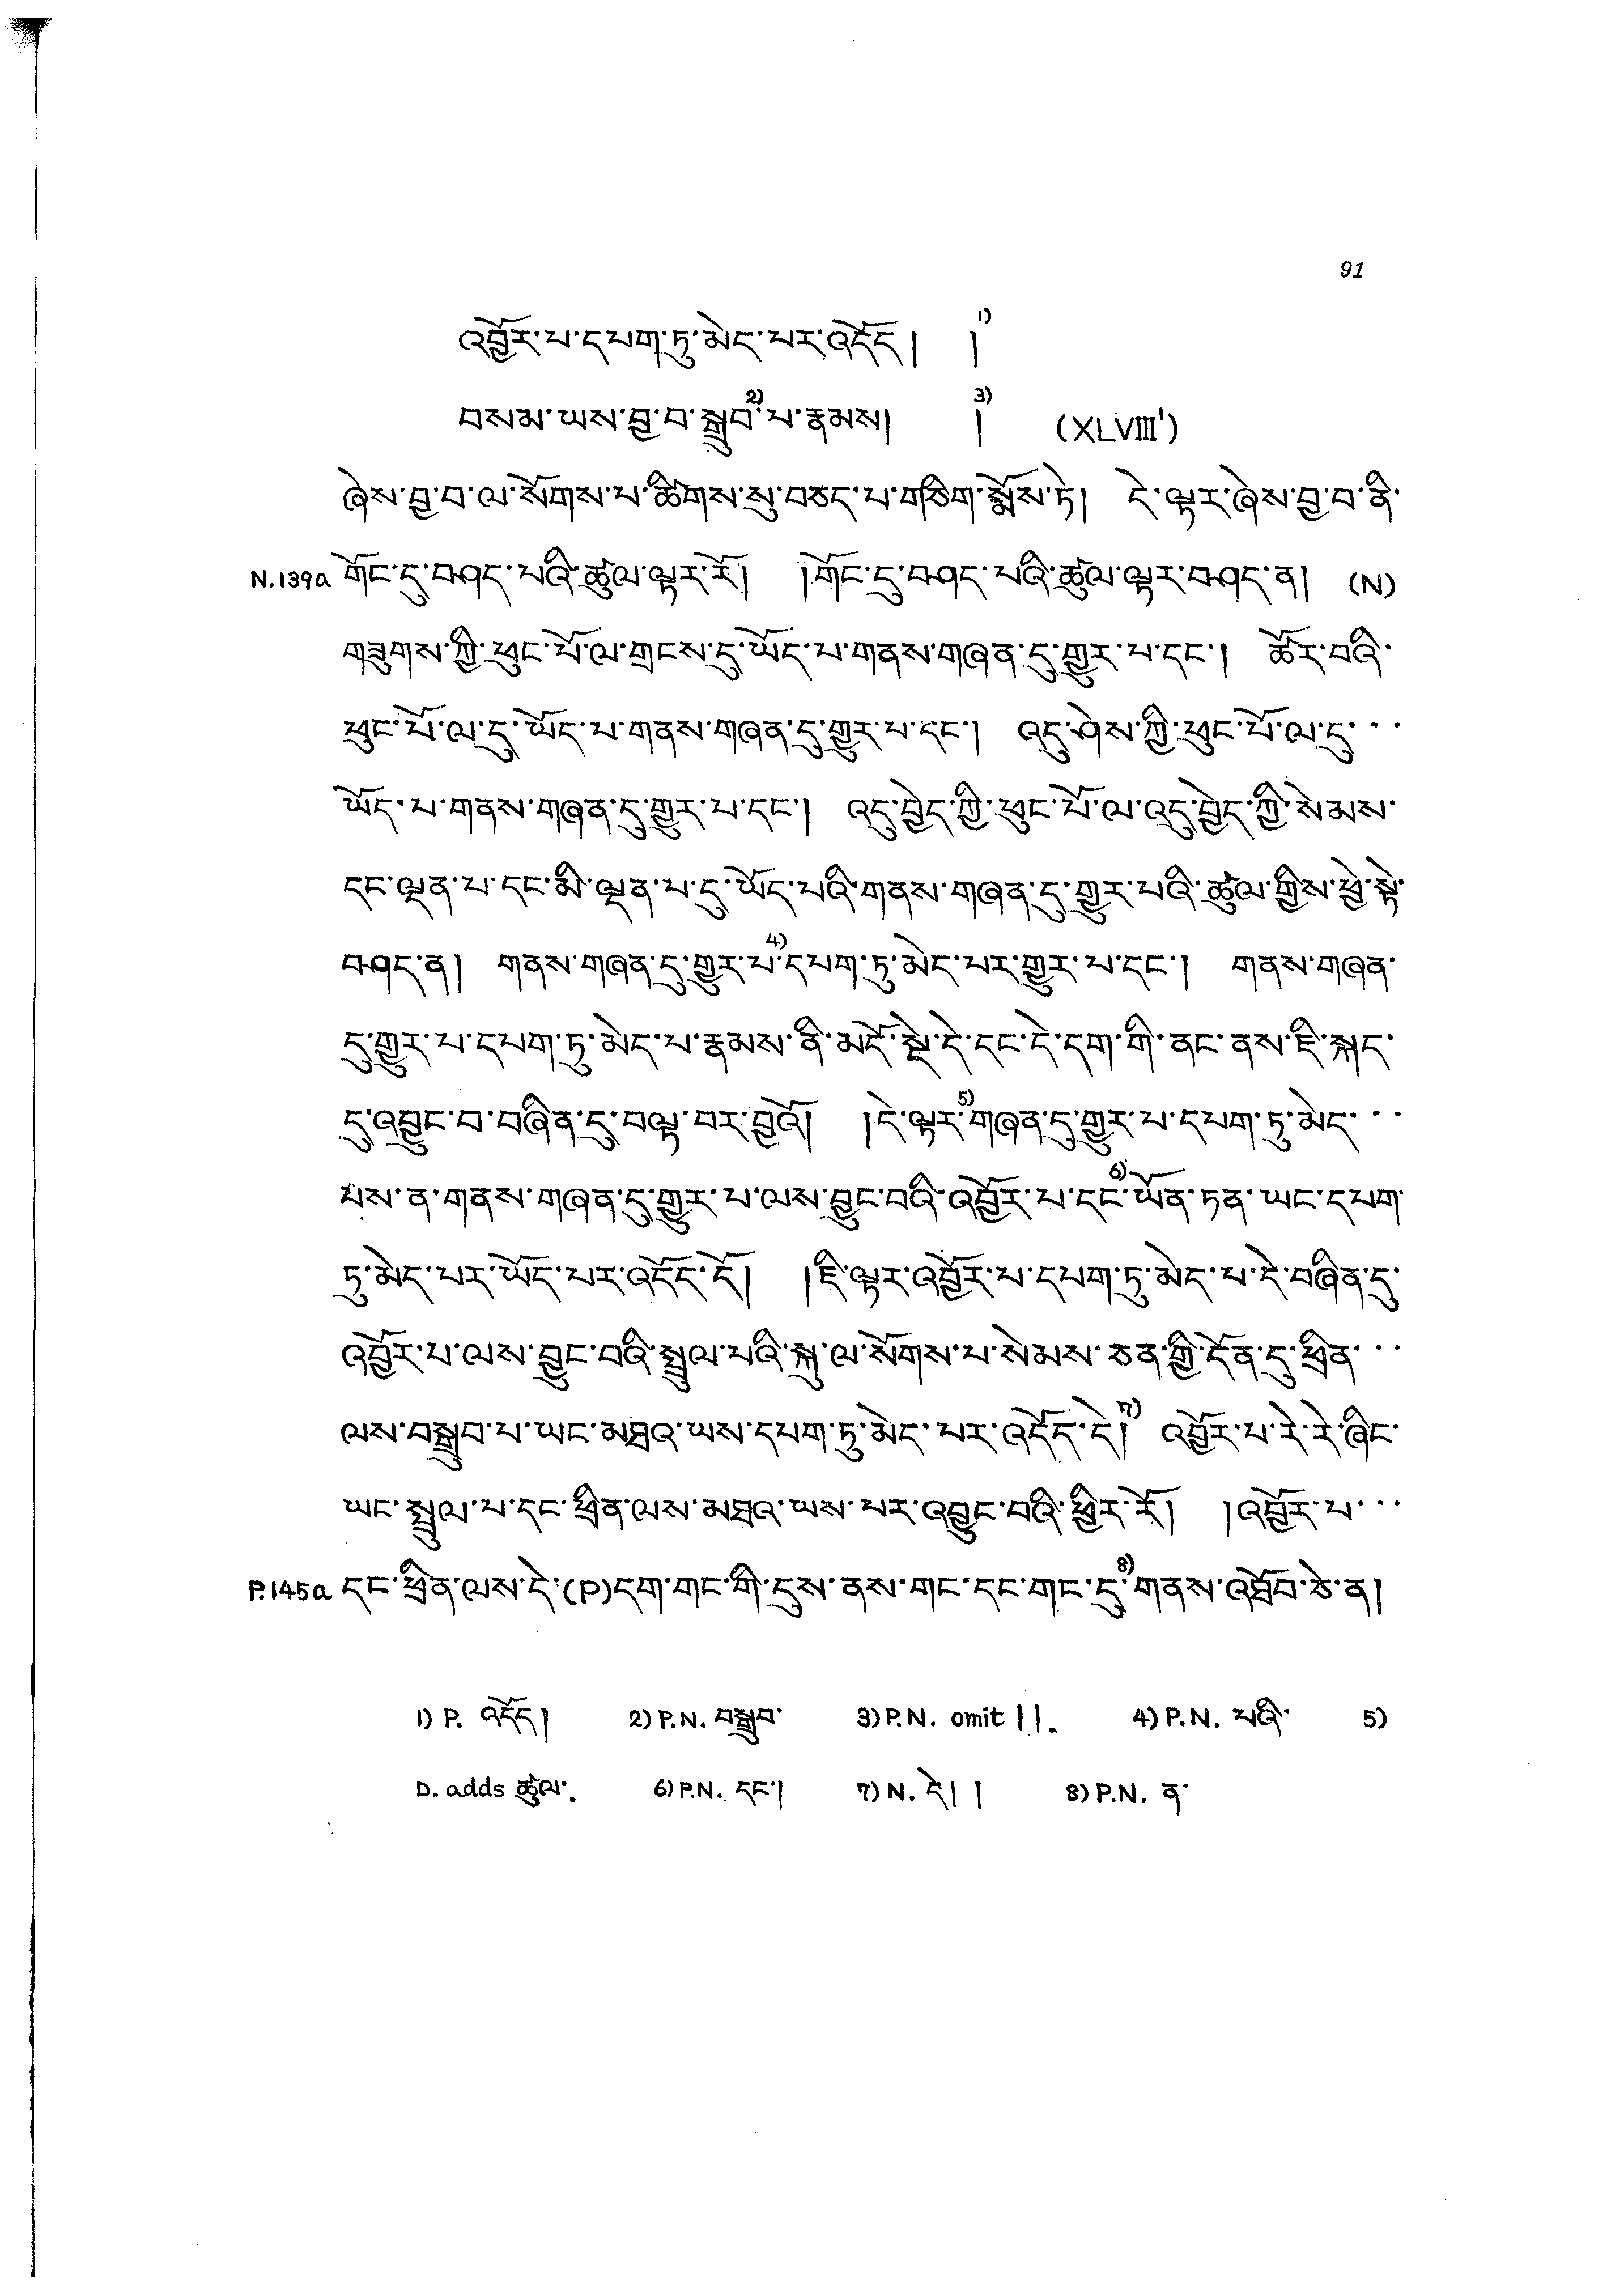 91
འབྱོར་པ་དཔག་ཏུ་མེད་པར་འདོད། །1)
བསམ་ཡས་བྱ་བ་སྒྲུབ་2)པ་རྣམས། །3) (XLVIII')
ཞེས་བྱ་བ་ལ་སོགས་པ་ཚིགས་སུ་བཅད་པ་གཅིག་སྨོས་ཏེ། དེ་ལྟར་ཞེས་བྱ་བ་ནི་
N.139a གོང་དུ་བཤད་པའི་ཚུལ་ལྟར་རོ། །གོང་དུ་བཤད་པའི་ཚུལ་ལྟར་བཤད་ན། (N)
གཟུགས་ཀྱི་ཕུང་པོ་ལ་གྲངས་དུ་ཡོད་པ་གནས་གཞན་དུ་གྱུར་པ་དང་། ཚོར་བའི་
ཕུང་པོ་ལ་དུ་ཡོད་པ་གནས་གཞན་དུ་གྱུར་པ་དང་། འདུ་ཤེས་ཀྱི་ཕུང་པོ་ལ་དུ་・・
ཡོད་པ་གནས་གཞན་དུ་གྱུར་པ་དང་། འདུ་བྱེད་ཀྱི་ཕུང་པོ་ལ་འདུ་བྱེད་ཀྱི་སེམས་
དང་ལྡན་པ་དང་མི་ལྡན་པ་དུ་ཡོད་པའི་གནས་གཞན་དུ་གྱུར་པའི་ཚུལ་གྱིས་ཕྱེ་སྟེ་
བཤད་ན། གནས་གཞན་དུ་གྱུར་པ་4)དཔག་ཏུ་མེད་པར་གྱུར་པ་དང་། གནས་གཞན་
དུ་གྱུར་པ་དཔག་ཏུ་མེད་པ་རྣམས་ནི་མདོ་སྡེ་དེ་དང་དེ་དག་གི་ནང་ནས་ཇི་སྐད་
དུ་འབྱུང་བ་བཞིན་དུ་བལྟ་བར་བྱའོ། །དེ་ལྟར་5)གཞན་དུ་གྱུར་པ་དཔག་ཏུ་མེད་・・
པས་ན་གནས་གཞན་དུ་གྱུར་པ་ལས་བྱུང་བའི་འབྱོར་པ་དང་6)ཡོན་ཏན་ཡང་དཔག་
ཏུ་མེད་པར་ཡོད་པར་འདོད་དོ། །ཇི་ལྟར་འབྱོར་པ་དཔག་ཏུ་མེད་པ་དེ་བཞིན་དུ་
འབྱོར་པ་ལས་བྱུང་བའི་སྤྲུལ་པའི་སྐུ་ལ་སོགས་པ་སེམས་ཅན་གྱི་དོན་དུ་ཕྲིན་・・
ལས་བསྒྲུབ་པ་ཡང་མཐའ་ཡས་དཔག་ཏུ་མེད་པར་འདོད་དེ།7) འབྱོར་པ་རེ་རེ་ཞིང་
ཡང་སྤྲུལ་པ་དང་ཕྲིན་ལས་མཐའ་ཡས་པར་འབྱུང་བའི་ཕྱིར་རོ། །འབྱོར་པ་・・
P.145a དང་ཕྲིན་ལས་དེ་(P)དག་གང་གི་དུས་ནས་གང་དང་གང་དུ་8)གནས་འཐོབ་ཅེ་ན།
1) P. འདོད། 2) P.N. བསྒྲུབ་ 3) P.N. omit །།. 4) P.N. པའི་ 5)
D. adds ཚུལ་. 6) P.N. དང་། 7) N. དེ། ། 8) P.N. ན་